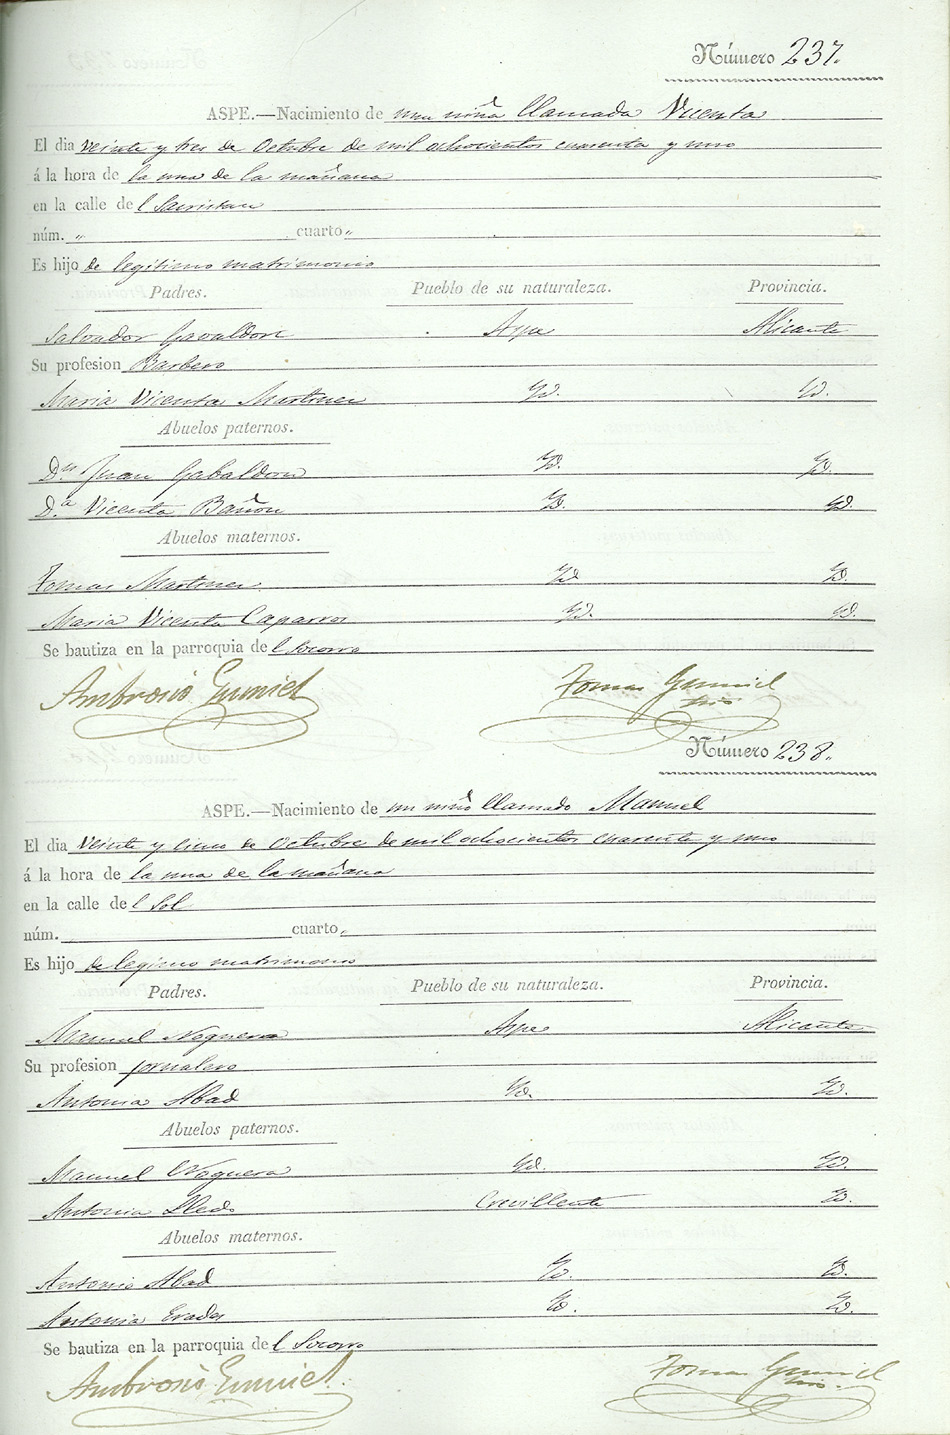 Número 237.
ASPE.—Nacimiento de una niña llamada Vicenta
El dia veinte y tres de Octubre de mil ochocientos cuarenta y uno
á la hora de la una de la mañana
en la calle de l Sacristan
núm. " cuarto "
Es hijo de legitimo matrimonio
Padres. Pueblo de su naturaleza. Provincia.
Salvador Gavaldon Aspe Alicante
Su profesion Barbero
Maria Vicenta Martinez Yd. Yd.
Abuelos paternos.
Dn Juan Gabaldon Yd. Yd.
Da. Vicenta Bañon Yd. Yd.
Abuelos maternos.
Tomas Martinez Yd Yd.
Maria Vicenta Caparros Yd. Yd.
Se bautiza en la parroquia de l Socorro
Ambrosio Gumiel Tomas Gumiel
Número 238.
ASPE.—Nacimiento de un niño llamado Manuel
El dia veinte y cinco de Octubre de mil ochocientos cuarenta y uno
á la hora de la una de la mañana
en la calle de l Sol
núm. cuarto
Es hijo de legimo matrimonio
Padres. Pueblo de su naturaleza. Provincia.
Manuel Noguera Aspe Alicante
Su profesion jornalero
Antonia Abad Yd. Yd.
Abuelos paternos.
Manuel Noguera Yd. Yd.
Antonia Lledo Crevillente Yd.
Abuelos maternos.
Antonio Abad Yd. Yd.
Antonia Yd. Yd.
Se bautiza en la parroquia de l Socorro
Ambrosio Gumiel Tomas Gumiel